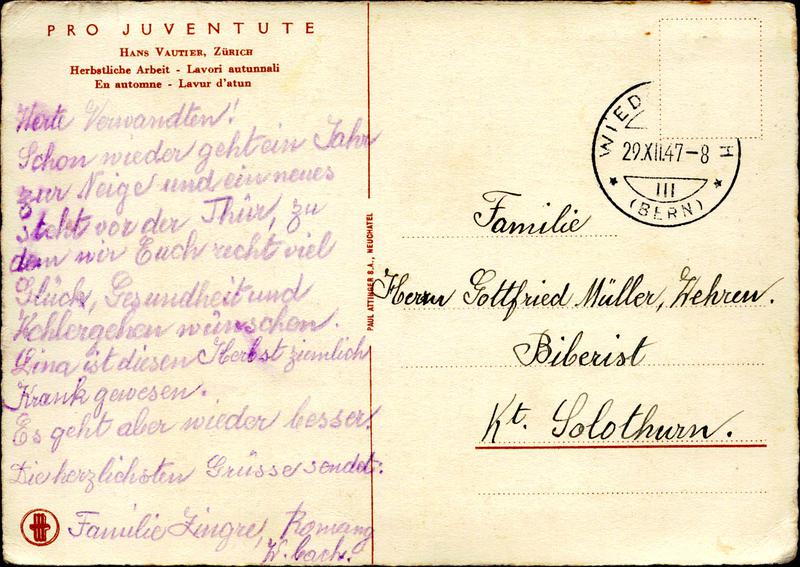 PRO JUVENTUTE
HANS VAUTIER, ZÜRICH
Herbstliche Arbeit - Lavori autunnali
En automne - Lavur d'atun
Werte Verwandten!
Schon wieder geht ein Jahr
zur Neige und ein neues
steht vor der Thür, zu
dem wir Euch recht viel
Glück, Gesundheit und
Wohlergehen wünschen.
Lina ist diesen Herbst ziemlich
Krank gewesen.
Es geht aber wieder besser.
Die herzlichsten Grüsse sendet:
Familie Zingre, Romang
W.bach.
PAUL ATTINGER S.A., NEUCHATEL
WIED H
29.XII.47-8
III
(BERN)
Familie
Herrn Gottfried Müller, Wehren.
Biberist
Kt. Solothurn.